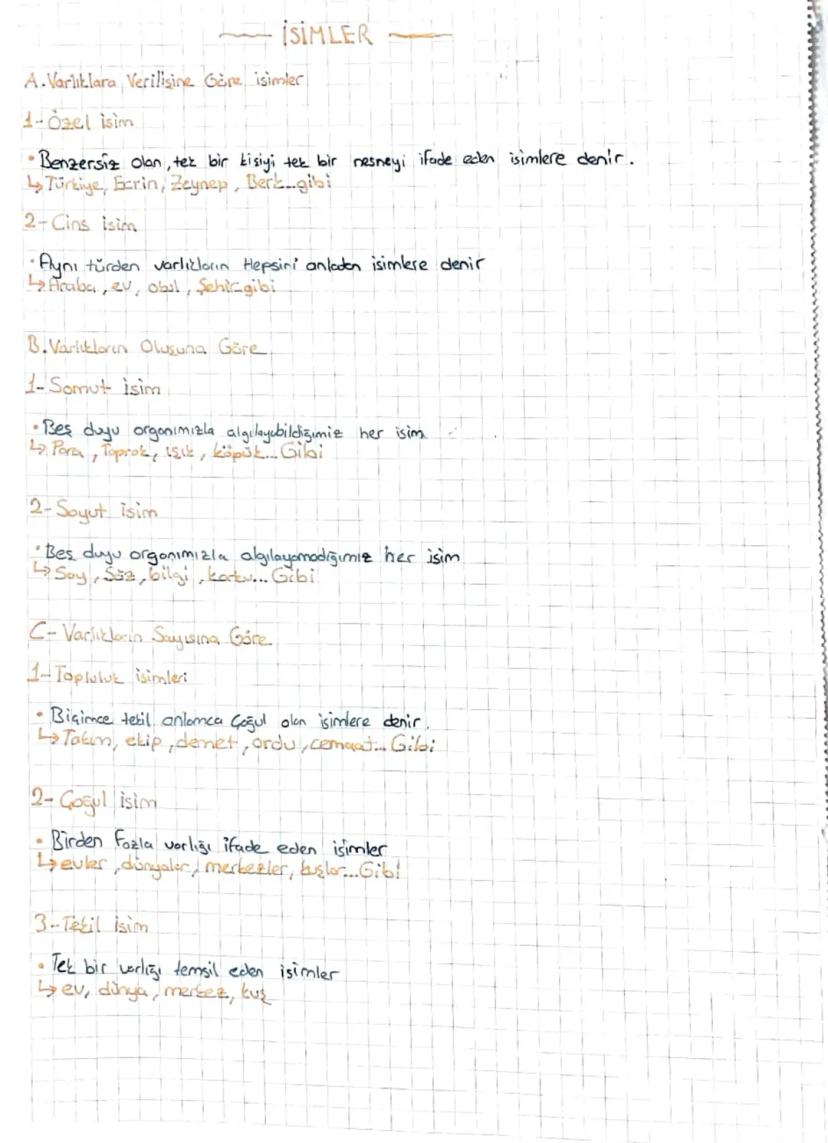 İSİMLER
A. Varlıklara Verilişine Göre isimler
1- Özel isim
• Benzersiz olan, tek bir kişiyi tek bir nesneyi ifade eden isimlere denir.
↳ Türkiye, Ecrin, Zeynep, Berk...gibi
2- Cins isim
• Aynı türden varlıkların Hepsini anlatan isimlere denir
↳ Araba, ev, okul, Şehir gibi
B. Varlıkların Oluşuna Göre
1- Somut isim
• Beş duyu organımızla algılayabildiğimiz her isim
↳ Para, Toprak, ışık, köpük... Gibi
2- Soyut isim
• Beş duyu organımızla algılayamadığımız her isim
↳ Soy, Söz, bilgi, korku... Gibi
C- Varlıkların Sayısına Göre
1- Topluluk isimleri
• Biçimce tekil anlamca Çoğul olan isimlere denir.
↳ Takım, ekip, demet, ordu, cemaat... Gibi
2- Çoğul isim
• Birden Fazla varlığı ifade eden isimler
↳ evler, dünyalar, merkezler, kuşlar...Gibi
3- Tekil isim
• Tek bir varlığı temsil eden isimler
↳ ev, dünya, merkez, kuş